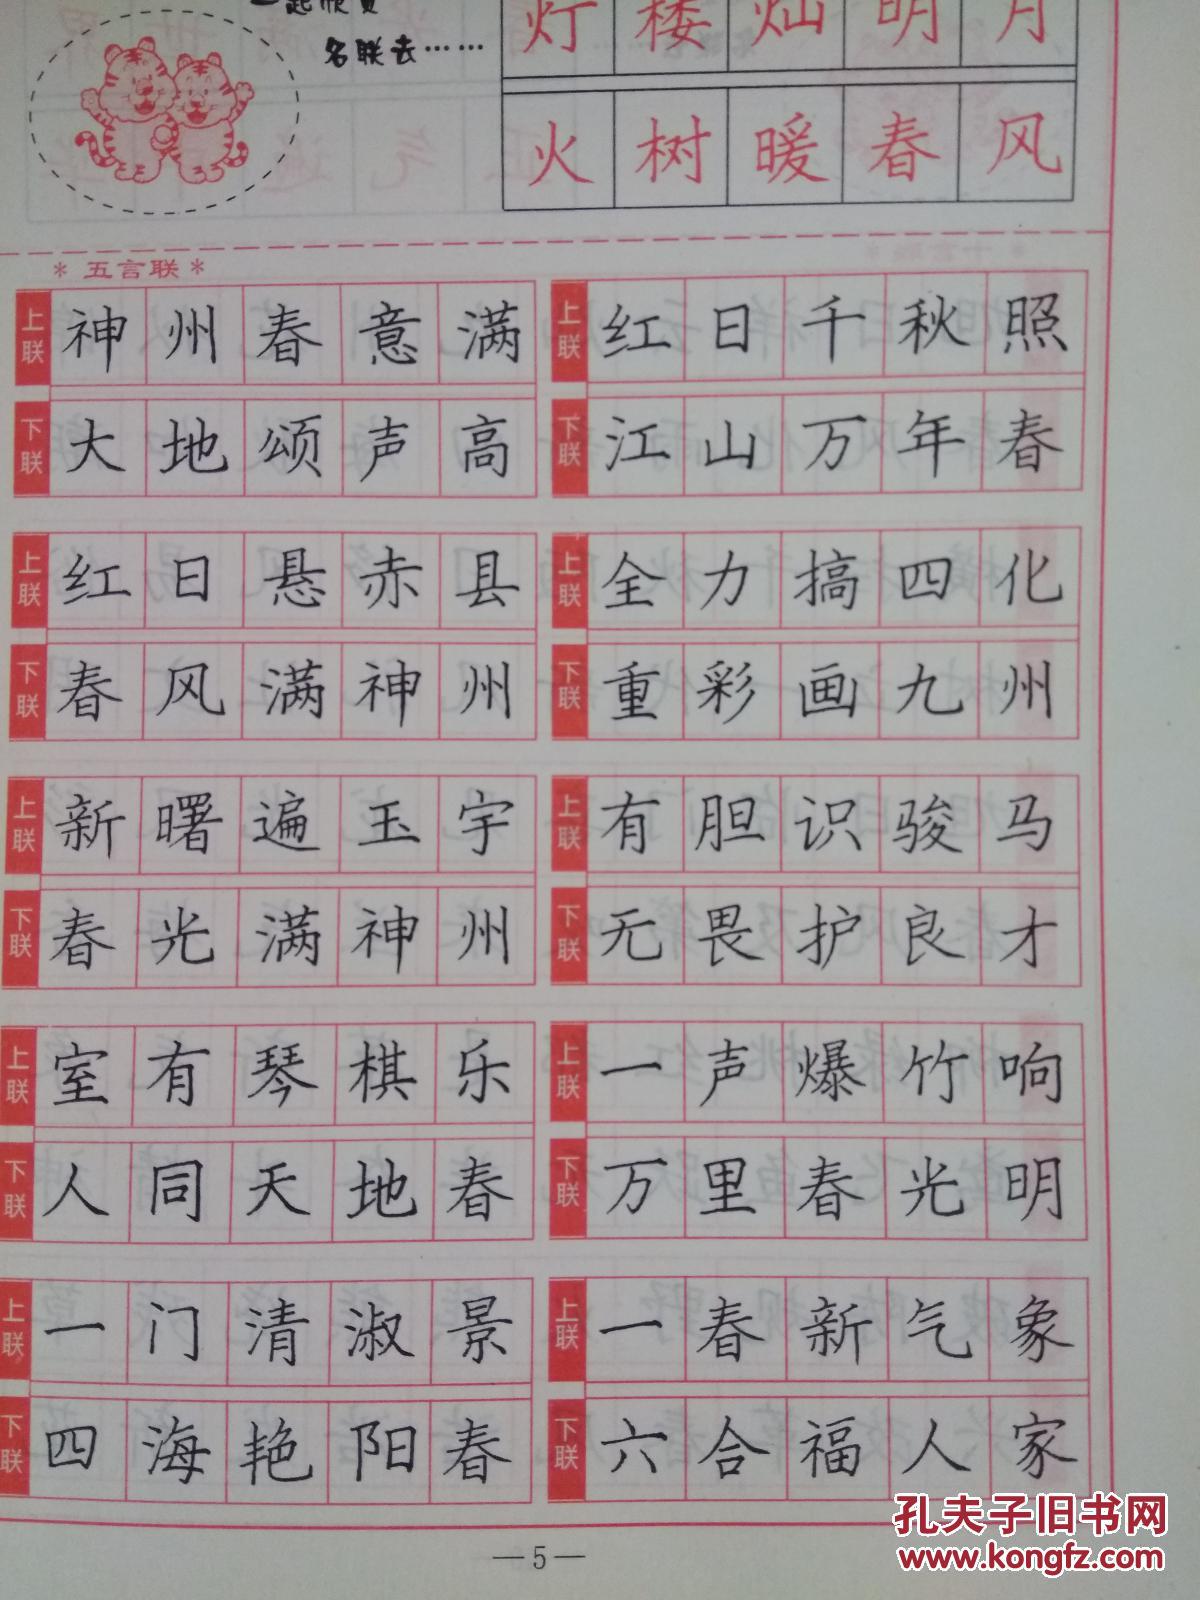 一起欣赏
名联去……
灯楼灿明月
火树暖春风
*五言联*
上联 神州春意满
下联 大地颂声高
上联 红日千秋照
下联 江山万年春
上联 红日悬赤县
下联 春风满神州
上联 全力搞四化
下联 重彩画九州
上联 新曙遍玉宇
下联 春光满神州
上联 有胆识骏马
下联 无畏护良才
上联 室有琴棋乐
下联 人同天地春
上联 一声爆竹响
下联 万里春光明
上联 一门清淑景
下联 四海艳阳春
上联 一春新气象
下联 六合福人家
孔夫子旧书网
www.kongfz.com
—5—